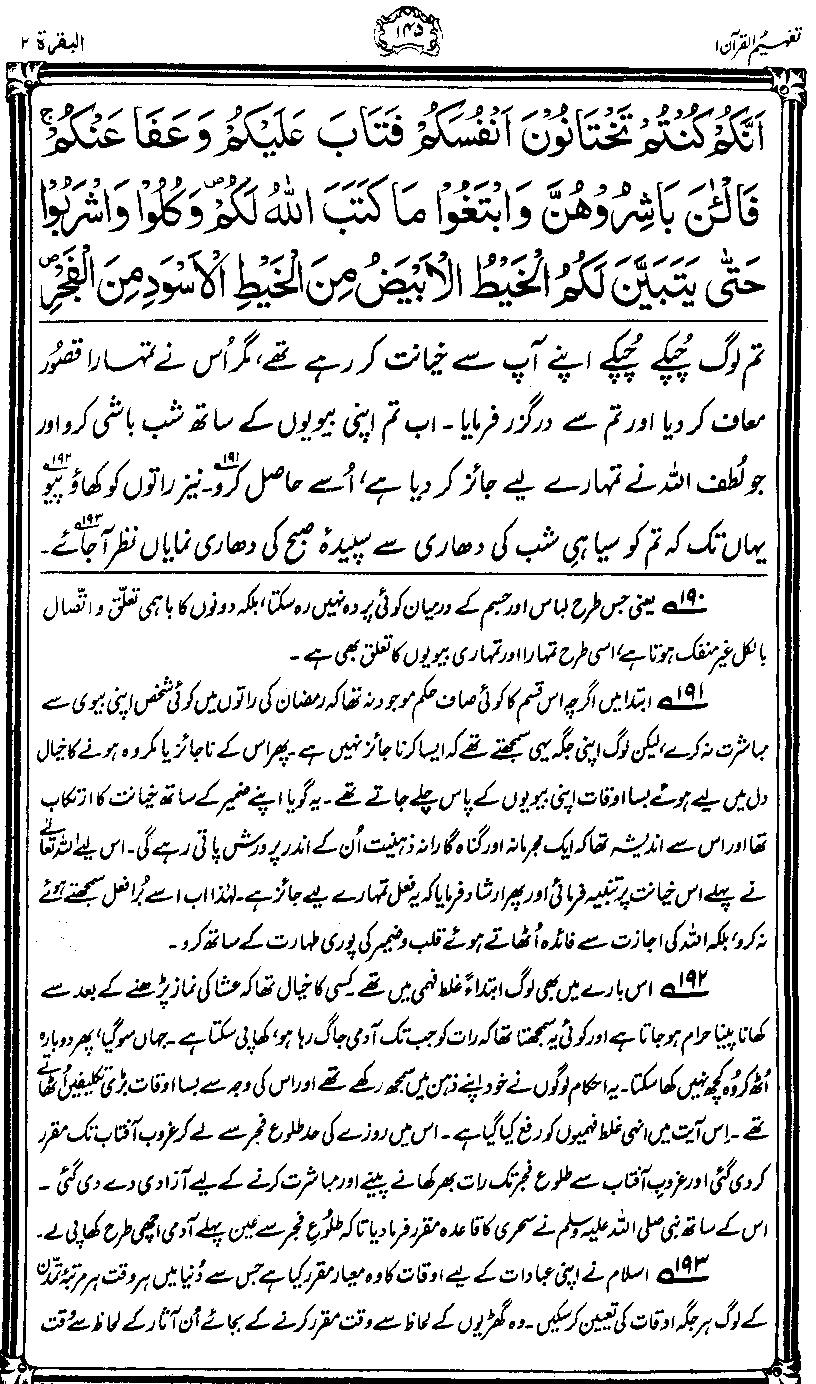 تفہیم القرآن ۱
۱۴۵
البقرة ۲
اَنَّكُمْ كُنْتُمْ تَخْتَانُوْنَ اَنْفُسَكُمْ فَتَابَ عَلَيْكُمْ وَعَفَا عَنْكُمْ ۚ
فَالْـٰٔنَ بَاشِرُوْهُنَّ وَابْتَغُوْا مَا كَتَبَ اللّٰهُ لَكُمْ ۪ وَكُلُوْا وَاشْرَبُوْا
حَتّٰى يَتَبَيَّنَ لَكُمُ الْخَيْطُ الْاَبْيَضُ مِنَ الْخَيْطِ الْاَسْوَدِ مِنَ الْفَجْرِ ۪
تم لوگ چُپکے چُپکے اپنے آپ سے خیانت کر رہے تھے، مگر اُس نے تمہارا قصُور
معاف کر دیا اور تم سے درگزر فرمایا۔ اب تم اپنی بیویوں کے ساتھ شب باشی کرو اور
جو لُطف اللہ نے تمہارے لیے جائز کر دیا ہے، اُسے حاصل کرو۱۹۱۔ نیز راتوں کو کھاؤ پیو۱۹۲
یہاں تک کہ تم کو سیاہیِ شب کی دھاری سے سپیدۂ صبح کی دھاری نمایاں نظر آجائے۱۹۳۔
۱۹۰ یعنی جس طرح لباس اور جسم کے درمیان کوئی پردہ نہیں رہ سکتا، بلکہ دونوں کا باہمی تعلق و اتّصال
بالکل غیر منفک ہوتا ہے، اسی طرح تمہارا اور تمہاری بیویوں کا تعلق بھی ہے۔
۱۹۱ ابتدا میں اگرچہ اس قسم کا کوئی صاف حکم موجود نہ تھا کہ رمضان کی راتوں میں کوئی شخص اپنی بیوی سے
مباشرت نہ کرے، لیکن لوگ اپنی جگہ یہی سمجھتے تھے کہ ایسا کرنا جائز نہیں ہے۔ پھر اس کے ناجائز یا مکروہ ہونے کا خیال
دل میں لیے ہوئے بسا اوقات اپنی بیویوں کے پاس چلے جاتے تھے۔ یہ گویا اپنے ضمیر کے ساتھ خیانت کا ارتکاب
تھا اور اس سے اندیشہ تھا کہ ایک مجرمانہ اور گناہ گارانہ ذہنیت اُن کے اندر پرورش پاتی رہے گی۔ اس لیے اللہ تعالیٰ
نے پہلے اس خیانت پر تنبیہ فرمائی اور پھر ارشاد فرمایا کہ یہ فعل تمہارے لیے جائز ہے۔ لہٰذا اب اسے بُرا فعل سمجھتے ہوئے
نہ کرو، بلکہ اللہ کی اجازت سے فائدہ اُٹھاتے ہوئے قلب و ضمیر کی پوری طہارت کے ساتھ کرو۔
۱۹۲ اس بارے میں بھی لوگ ابتداءً غلط فہمی میں تھے کسی کا خیال تھا کہ عشا کی نماز پڑھنے کے بعد سے
کھانا پینا حرام ہو جاتا ہے اور کوئی یہ سمجھتا تھا کہ رات کو جب تک آدمی جاگ رہا ہو، کھا پی سکتا ہے۔ جہاں سو گیا، پھر دوبارہ
اُٹھ کر وُہ کچھ نہیں کھا سکتا۔ یہ احکام لوگوں نے خود اپنے ذہن میں سمجھ رکھے تھے اور اس کی وجہ سے بسا اوقات بڑی تکلیفیں اُٹھاتے
تھے۔ اِس آیت میں انہی غلط فہمیوں کو رفع کیا گیا ہے۔ اس میں روزے کی حد طلوع فجر سے لے کر غروب آفتاب تک مقرر
کر دی گئی اور غروبِ آفتاب سے طلوع فجر تک رات بھر کھانے پینے اور مباشرت کرنے کے لیے آزادی دے دی گئی۔
اس کے ساتھ نبی صلی اللہ علیہ وسلم نے سحری کا قاعدہ مقرر فرما دیا تاکہ طلُوعِ فجر سے عین پہلے آدمی اچھی طرح کھا پی لے۔
۱۹۳ اسلام نے اپنی عبادات کے لیے اوقات کا وہ معیار مقرر کیا ہے جس سے دُنیا میں ہر وقت ہر مرتبۂ تمدّن
کے لوگ ہر جگہ اوقات کی تعیین کر سکیں۔ وہ گھڑیوں کے لحاظ سے وقت مقرر کرنے کے بجائے اُن آثار کے لحاظ سے وُقت